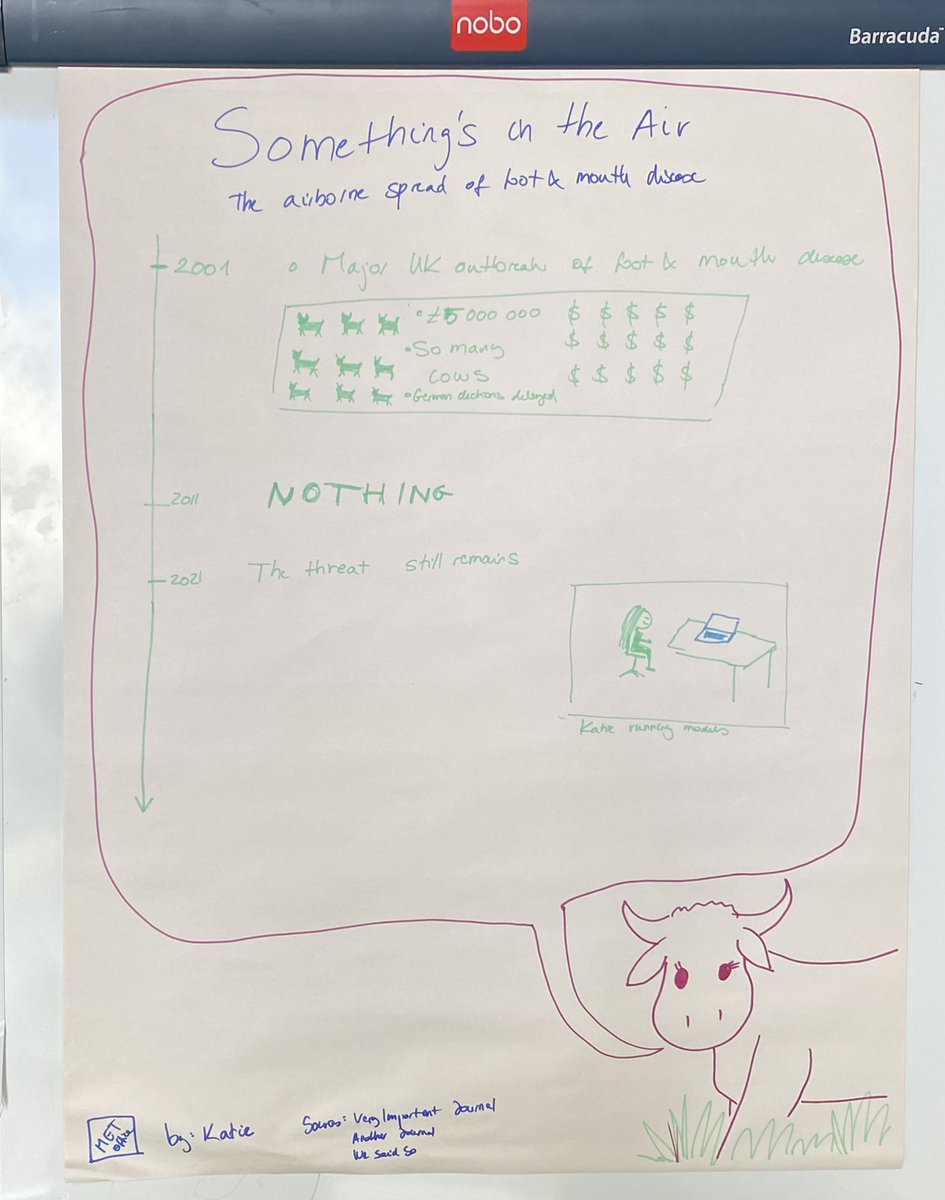 nobo
Barracuda
Something's in the Air
The airborne spread of foot & mouth disease
2001
• Major UK outbreak of foot & mouth disease
• £5 000 000 $ $ $ $ $
• So many $ $ $ $ $
cows $ $ $ $ $
• German elections delayed
2011 NOTHING
2021 The threat still remains
Katie running models
MET office
by: Katie
Sources: Very Important Journal
Another Journal
We Said So